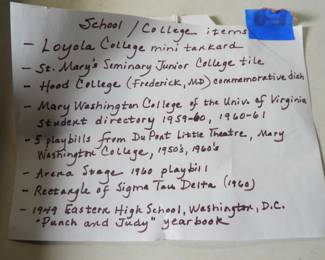 School / College items
- Loyola College mini tankard
- St. Mary's Seminary Junior College tile
- Hood College (Frederick, MD) commemorative dish
- Mary Washington College of the Univ. of Virginia
student directory 1959-60, 1960-61
- 5 playbills from Du Pont Little Theatre, Mary
Washington College, 1950's, 1960's
- Arena Stage 1960 playbill
- Rectangle of Sigma Tau Delta (1960)
- 1949 Eastern High School, Washington, D.C.
"Punch and Judy" yearbook